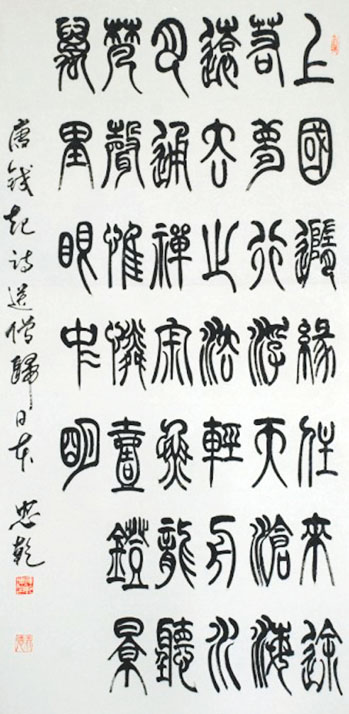 上國隨緣住來途
若夢行浮天滄海
遠去世法輕舟水
月通禪宗魚龍聽
梵聲惟憐壹鐙景
萬里眼中明
唐錢起詩送僧歸日本 乾